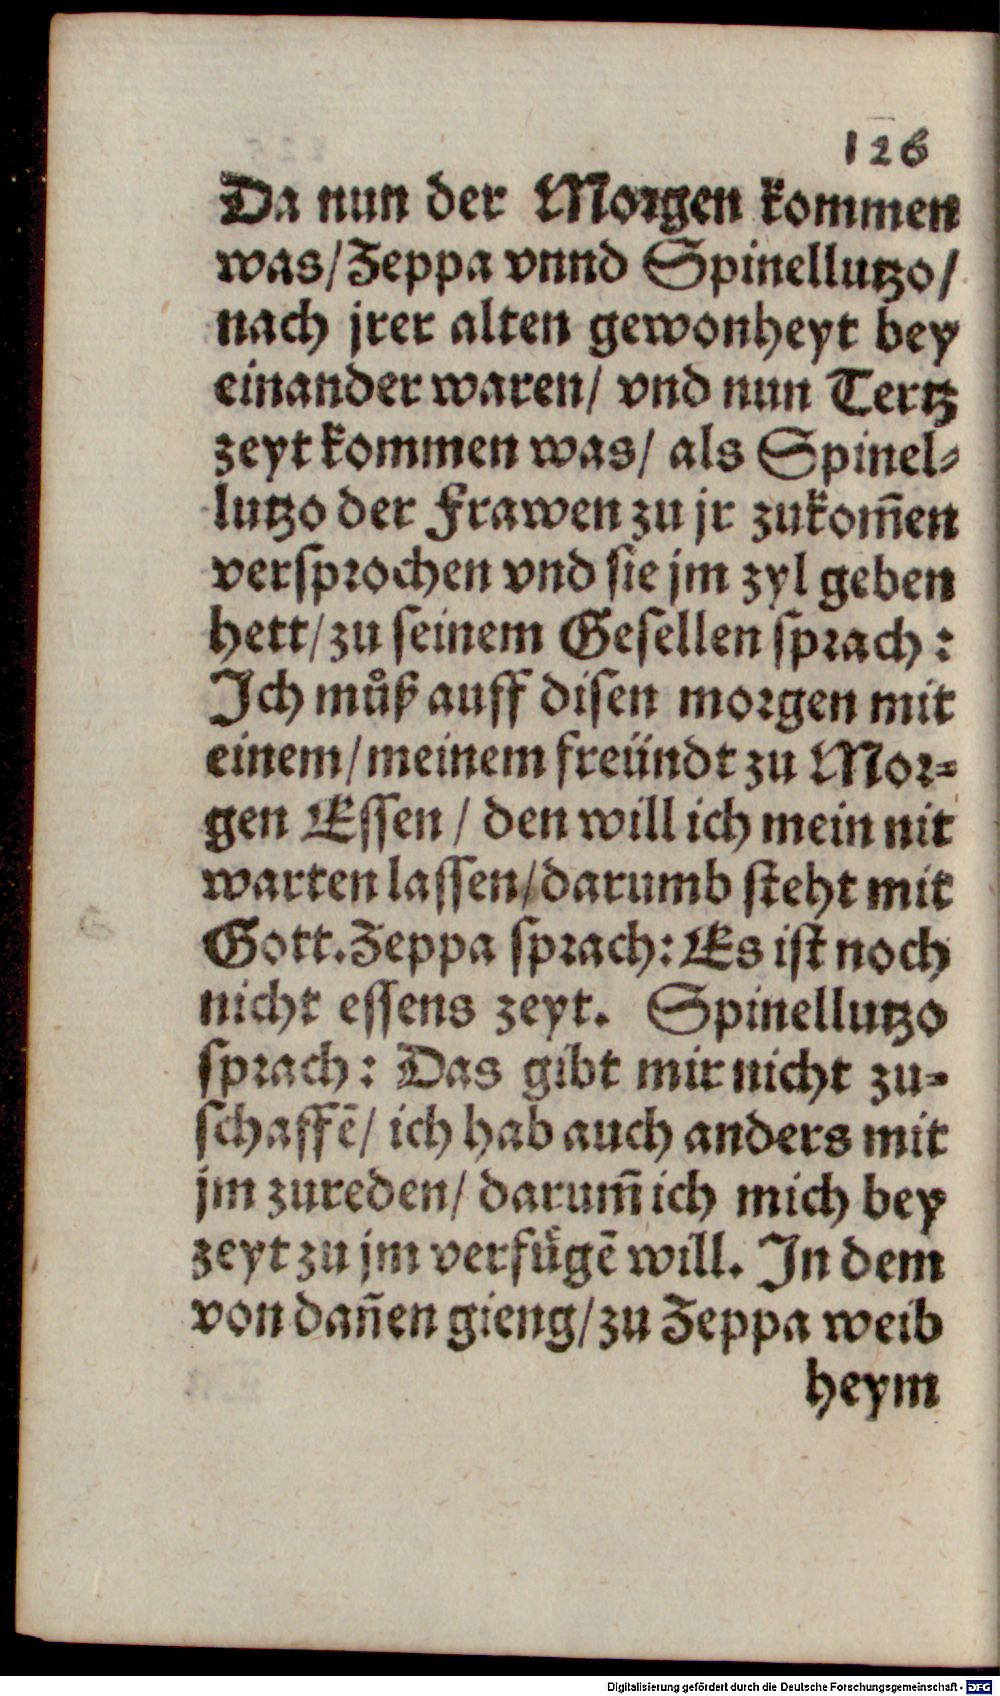 126
Da nun der Morgen kommen
was/Zeppa vnnd Spinellutzo/
nach jrer alten gewonheyt bey
einander waren/ vnd nun Tertz
zeyt kommen was/ als Spinel-
lutzo der Frawen zu jr zukom̃en
versprochen vnd sie jm zyl geben
hett/zu seinem Gesellen sprach:
Ich můß auff disen morgen mit
einem/meinem freündt zu Mor-
gen Essen / den will ich mein nit
warten lassen/darumb steht mit
Gott. Zeppa sprach: Es ist noch
nicht essens zeyt. Spinellutzo
sprach: Das gibt mir nicht zu-
schaffẽ/ ich hab auch anders mit
jm zureden/ darum̃ ich mich bey
zeyt zu jm verfuͤgẽ will. In dem
von dañen gieng/zu Zeppa weib
heym
Digitalisierung gefördert durch die Deutsche Forschungsgemeinschaft - DFG